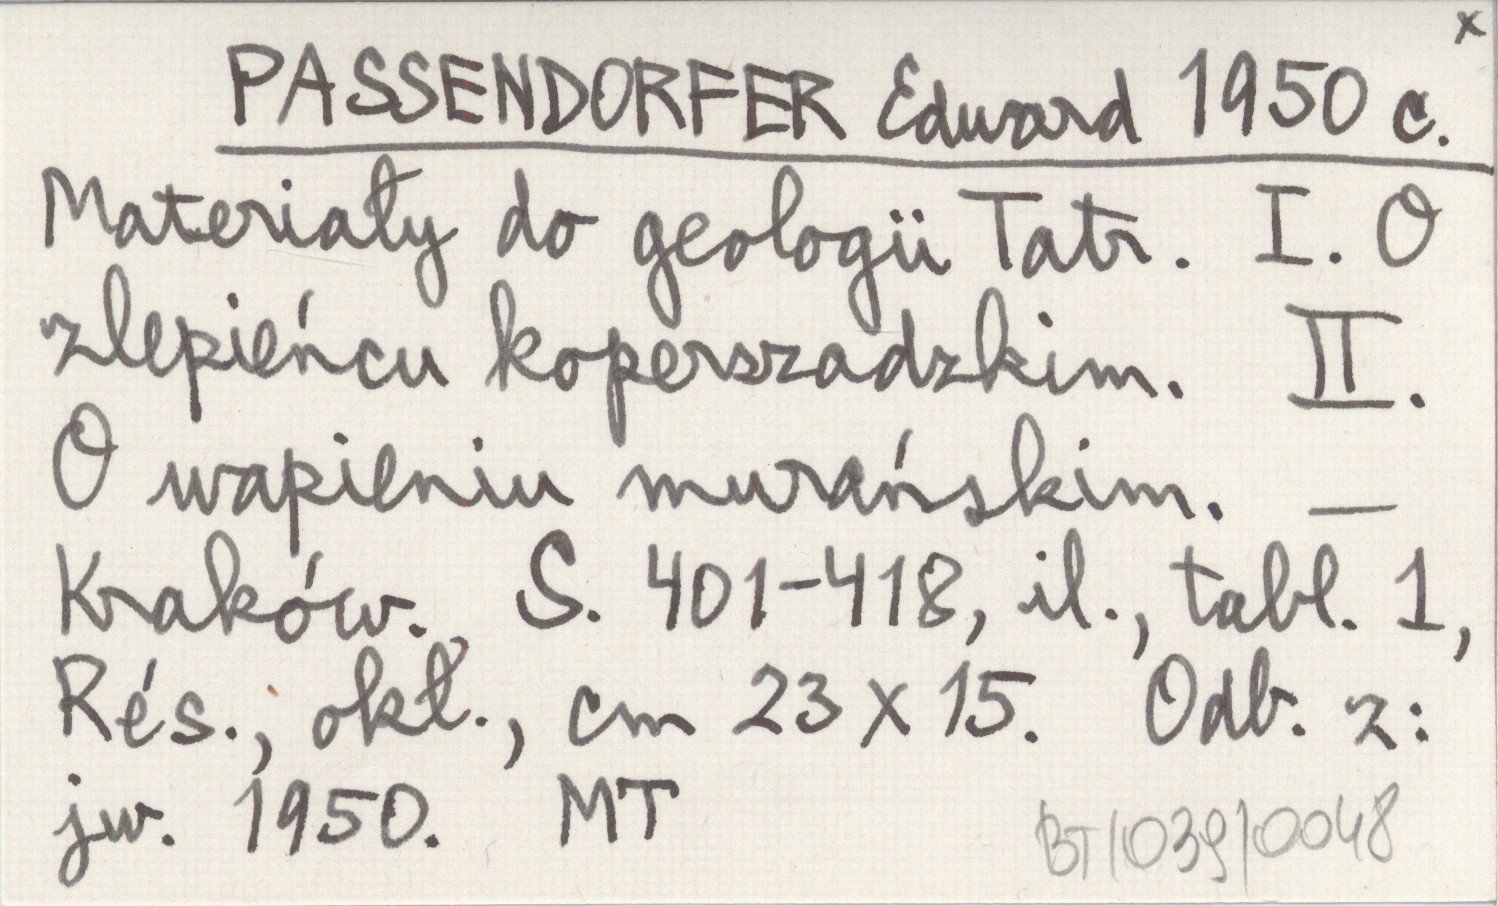 x
PASSENDORFER Edward 1950 c.
Materiały do geologii Tatr. I. O
zlepieńcu koperszadzkim. II.
O wapieniu murańskim. —
Kraków. S. 401-418, il., tabl. 1,
Rés., okł., cm 23 x 15. Odb. z:
jw. 1950. MT
BT/039/0048